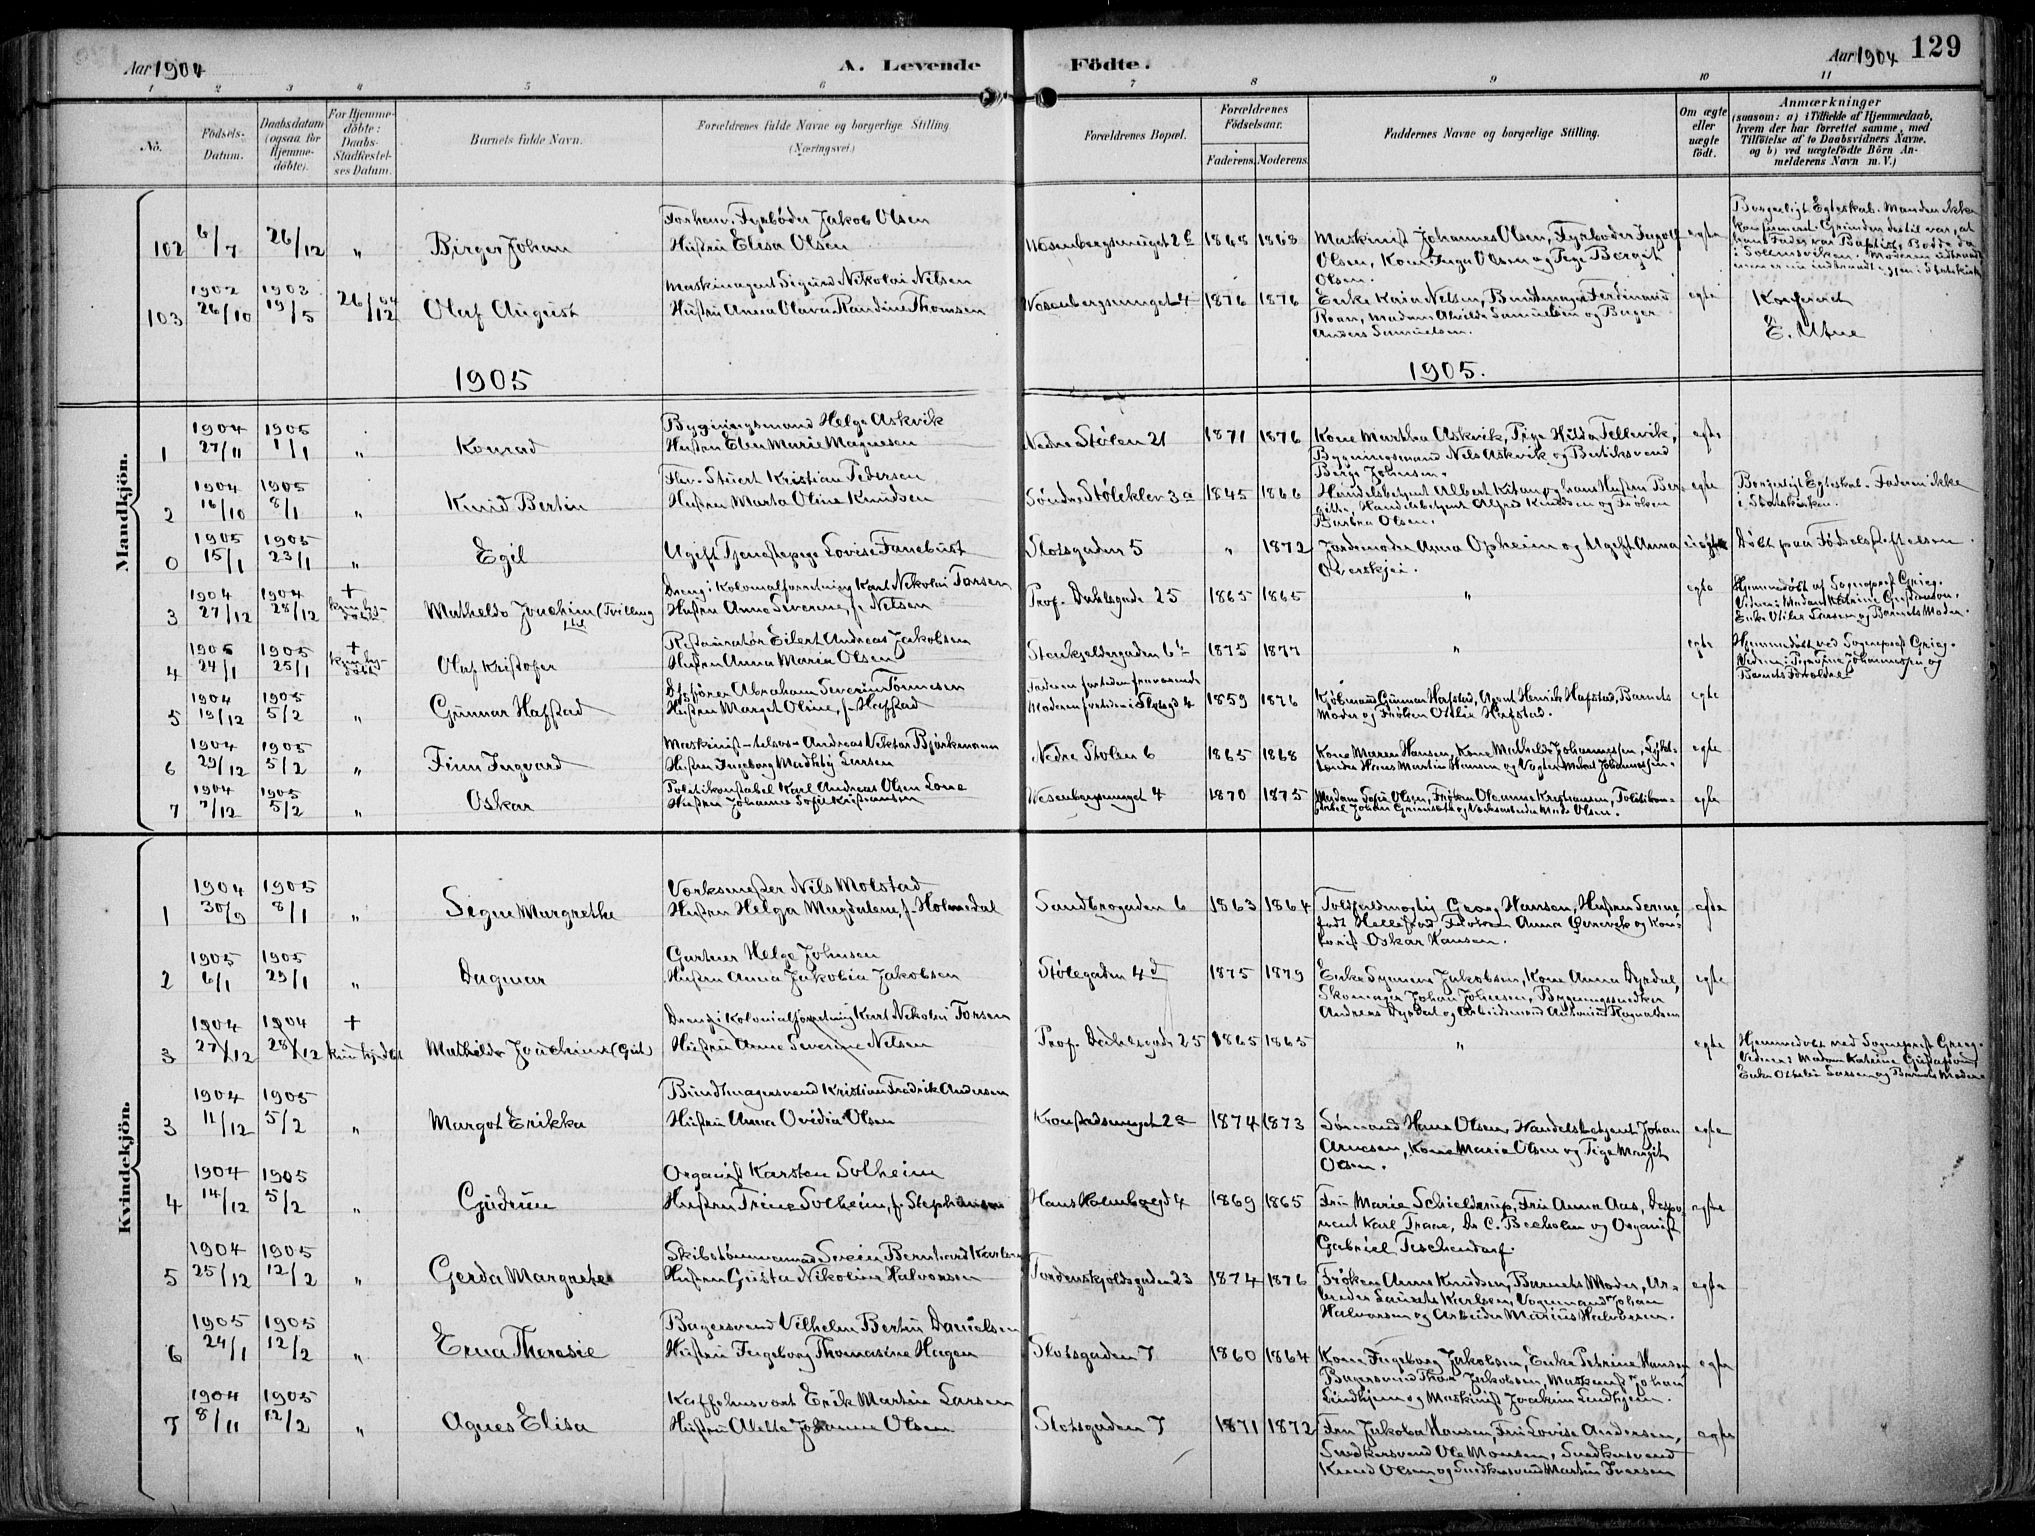 Aar 1904
A. Levende
Födte.
Aar 1904
129
1 2 3 4 5 6 7 8 9 10 11
No.
Födsels-
Datum.
Daabsdatum
(ogsaa for
Hjemme-
döbte).
For Hjemme-
döbte:
Daabs-
Stadfæstel-
ses Datum.
Barnets fulde Navn.
Forældrenes fulde Navne og borgerlige Stilling
(Næringsvei.)
Forældrenes Bopæl.
Forældrenes
Födselsaar.
Faderens. Moderens.
Faddernes Navne og borgerlige Stilling.
Om ægte
eller
uægte
födt.
Anmærkninger
(saasom: a) i Tilfælde af Hjemmedaab,
hvem der har forrettet samme, med
Tilföielse af to Daabsvidners Navne,
og b) ved uægtefödte Börn An-
melderens Navn m. V.)
Mandkjön.
102 6/7 26/12 " Birger Johan
Forhenv. Fyrbøder Jakob Olsen
Hustru Elisa Olsen
Wesenbergsmuget 2c 1865 1868
Maskinist Johannes Olsen, Fyrbøder Ingolf
Olsen, Kone Inga Olsen og Pige Bergit
Olsen.
egte
Borgerligt Egteskab. Manden ikke
konfirmeret. Grunden dertil var, at
hans Fader var Baptist. Bodde da
i Solheimsviken.
103 1902 26/10 1903 19/5 26/12 04 Olaf August
Maskinagent Sigurd Nikolai Nilsen
Hustru Anna Olava Randine Thomsen
Wesenbergsmuget 4 1876 1876
Enke Kaia Nelsen, Buntmager Ferdinand
Roan, Madam Alvilda Samuelsen og Bager
Anders Samuelsen.
egte
Konfereret
E. Utne
1905
1905.
1 1904 27/11 1905 1/1 " Konrad
Bygningsmand Helge Askvik
Hustru Elen Marie Magnesen
Nedre Stølen 21 1871 1876
Kone Martha Askvik, Pige Hilda Tellevik,
Bygningsmand Nils Askvik og Butiksvend
Berge Johnsen.
egte
2 1904 16/10 1905 8/1 " Knud Bertin
Fhv. Stuert Kristian Pedersen
Hustru Marta Oline Knudsen
Søndre Stølekleven 3a 1845 1866
Handelsbetjent Albert Kitan, og hans Hustru Ber-
gitte, Handelsbetjent Alfred Knudsen og Frøken
Barbra Olsen.
egte
Borgerligt Egteskab. Faderen ikke
i Statskirken.
0 1905 15/1 1905 23/1 " Egil
Ugift Tjenestepige Lovise Fanebust
Slotsgaden 5 " 1872
Jordemoder Anna Opheim og Ugift Anna
uegte
Døbt paa Fødselsstiftelsen.
3 1904 27/12 1904 28/12 +
Mathelds Joachim (Tvilling
Dreng i Kolonialforretning Karl Nikolai Torsen
Hustru Anne Severine, f. Nelsen
Prof. Dahlsgade 25 1865 1865 " egte
Hjemmedøbt af Sogneprest Grieg.
4 1905 24/1 1905 25/1 +
Olaf Kristofer
Restauratør Eilert Andreas Jakobsen
Hustru Anna Maria Olsen
Stenkjeldergaden 6b 1875 1877 " egte
Hjemmedøbt ved Sogneprest Grieg.
Barnets Forældre.
5 1904 19/12 1905 5/2 Gunnar Hafstad
Skibsfører Abraham Severin Tønnesen
Hustru Marget Oline, f. Hafstad
Faderen fortiden fraværende
Moderen fortiden i Slotsgd 4 1859 1876
Kjøbmand Gunnar Hafstad, Agent Henrik Hafstad, Barnets
Moder og Frøken Ottilie Hafstad.
egte
6 1904 29/12 1905 5/2 " Finn Ingvard
Maskinist Andreas Viktor Bjørkmann
Hustru Ingeborg Mathby Larsen
Nedre Stølen 6 1865 1868
Kone Maren Hansen, Kone Mathelds Johannessen, Lykt-
tænder Hans Martin Hansen og Vogter Johannessen.
egte
7 1904 7/12 1905 5/2 " Oskar
Politikonstabel Karl Andreas Olsen Lone
Hustru Johanne Sofie Kristiansen
Wesenbergsmuget 4 1870 1875
Madam Sofie Olsen, Frøken Oleanne Kristiansen, Politikon-
stabel Johan Grimstad og Verksarbeider Mads Olsen.
egte
Kvindekjön.
1 1904 30/9 1905 8/1 " Signe Margrethe
Værksmester Nils Molstad
Hustru Helga Magdalene, f. Holmedal
Sandbrogaden 6 1863 1864
Toldfuldmægtig Georg Hansen, Hustru Serine
født Hellestad, Frøken Anna Ørnevik og Kon-
torist Oskar Hansen.
egte
2 1905 6/1 1905 29/1 " Dagmar
Gartner Helge Johnsen
Hustru Anna Jakobia Jakobsen
Stølegaden 4d 1875 1879
Enke Synneve Jakobsen, Kone Anna Dyrdal,
Skomager Johan Johnsen, Bygningssnedker
Andreas Dyrdal og Arbeidsmand Antonius Ragnaldsen
egte
3 1904 27/12 1904 28/12 + Kun hjdbt
Mathilde Joachime (Gut)
Dreng i Kolonialforretning Karl Nikolai Torsen
Hustru Anne Severine Nelsen
Prof. Dahlsgade 25 1865 1865 " egte
Hjemmedøbt ved Sogneprest Grieg.
Vidner: Madam Katrine Gustafson,
Enke Othelie Larsen og Barnets Moder
3 1904 11/12 1905 5/2 " Margot Erikka
Bundtmagersvend Kristian Fredrik Andersen
Hustru Anna Ovidia Olsen
Kronstadsmuget 2a 1874 1873
Sømand Hans Olsen, Handelsbetjent Johan
Arnesen, Kone Marie Olsen og Pige Margit
Olsen.
egte
4 1904 14/12 1905 5/2 " Gudrun
Organist Karsten Solheim
Hustru Trine Solheim, f. Stephansen
Hans Holmboegd 4 1869 1865
Fru Marie Schielderup, Fru Anna Aas, Dispo-
nent Karl Traae, Dr C. Beeholm og Organist
Gabriel Tischendorf.
egte
5 1904 25/12 1905 12/2 " Gerda Margrethe
Skibstømmermand Svein Bernhard Karlsen
Hustru Gusta Nikoline Halvorsen
Tordenskjoldsgaden 23 1874 1876
Frøken Anna Knudsen, Barnets Moder, Ar-
beider Laurits Karlsen, Vognmand Johan
Halvorsen og Arbeider Marius Halvorsen.
egte
6 1905 24/1 1905 12/2 " Erna Theresie
Bagersvend Vilhelm Bertin Danielsen
Hustru Ingeborg Thomasine Hagen
Slotsgaden 7 1860 1864
Kone Ingeborg Jakobsen, Enke Petrine Hansen
Bagersvend Thor Jakobsen, Maskinist Johan
Lindhjem og Maskinist Joakim Lindhjem.
egte
7 1904 8/11 1905 12/2 " Agnes Elisa
Kaffehusvært Erik Martin Larsen
Hustru Aletta Johanne Olsen
Slotsgaden 7 1871 1872
Fru Jakoba Hansen, Fru Lovise Andersen,
Snedkersvend Ole Monsen, Snedkersvend
Knud Olsen og Snedkersvend Martin Iversen
egte